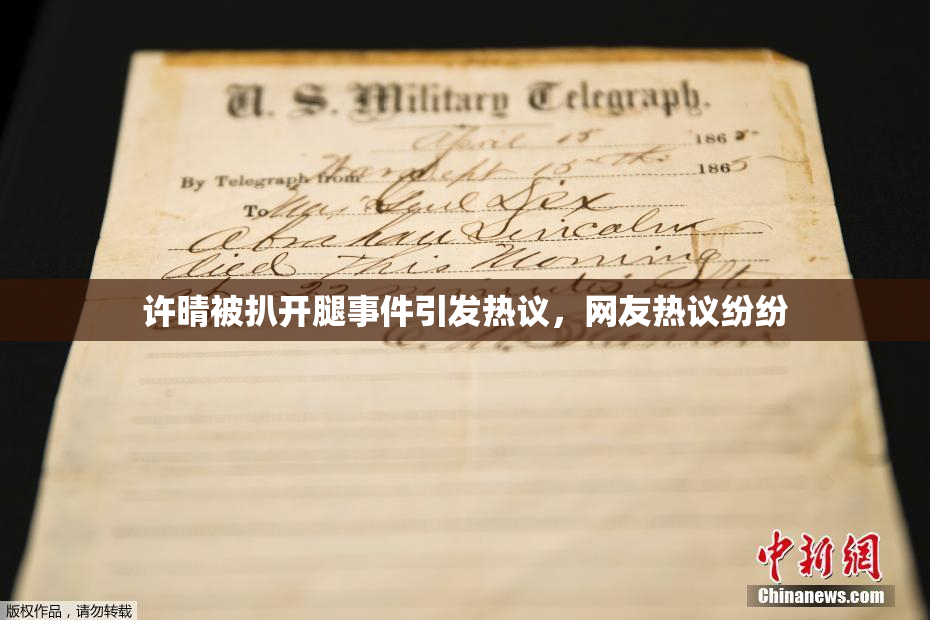 U. S. Military Telegraph.
April 15 1865
By Telegraph from War Dept 15th 1865
To Maj Genl Dix
Abraham Lincoln
died This Morning
at 22 minutes after
许晴被扒开腿事件引发热议，网友热议纷纷
E. M. Stanton
中新网
Chinanews.com
版权作品，请勿转载